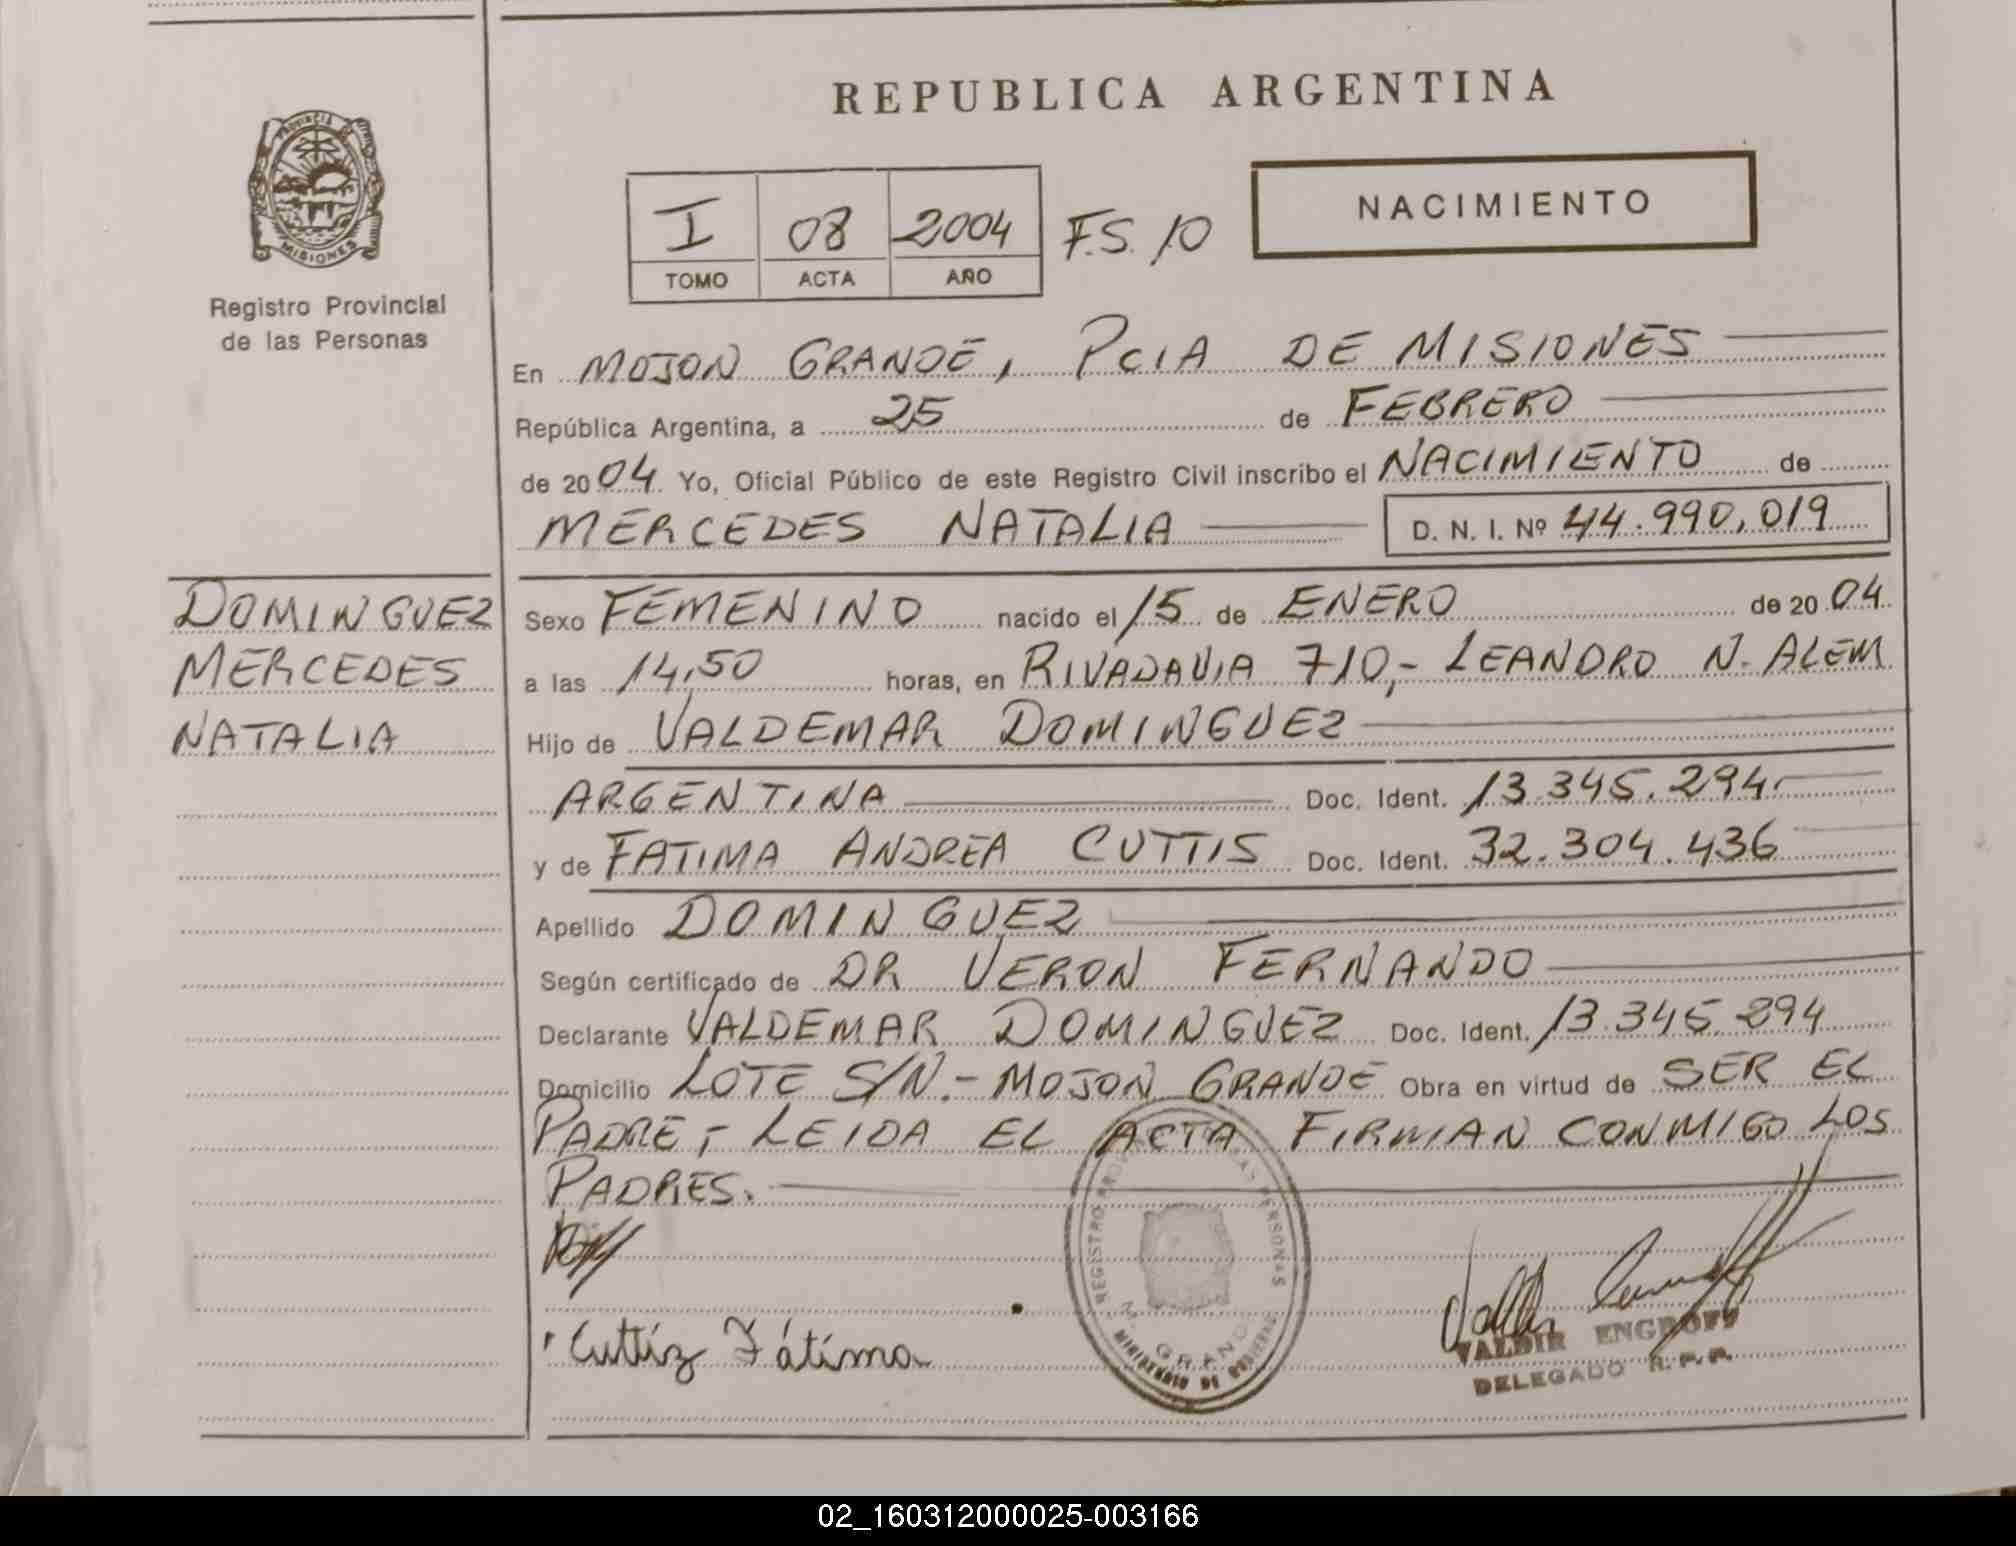 REPUBLICA ARGENTINA
PROVINCIA DE
MISIONES
Registro Provincial
de las Personas
I 08 2004 F.S. 10
TOMO ACTA AÑO
NACIMIENTO
En MOJON GRANDE, PCIA DE MISIONES
República Argentina, a 25 de FEBRERO
de 2004 Yo, Oficial Público de este Registro Civil inscribo el NACIMIENTO de
MERCEDES NATALIA D. N. I. Nº 44.990,019
DOMINGUEZ
MERCEDES
NATALIA
Sexo FEMENINO nacido el 15 de ENERO de 2004
a las 14,50 horas, en RIVADAVIA 710,- LEANDRO N. ALEM
Hijo de VALDEMAR DOMINGUEZ
ARGENTINA Doc. Ident. 13.345.294
y de FATIMA ANDREA CUTTIS Doc. Ident. 32.304.436
Apellido DOMINGUEZ
Según certificado de DR VERON FERNANDO
Declarante VALDEMAR DOMINGUEZ Doc. Ident. 13.345.294
Domicilio LOTE S/N.- MOJON GRANDE Obra en virtud de SER EL
PADRE,- LEIDA EL ACTA FIRMAN CONMIGO LOS
PADRES.
REGISTRO PERSONAS
M. GRANDE
MINISTERIO DE GOBIERNO
Cuttiz Fátima
VALDIR ENGROFF
DELEGADO R. P. P.
02_160312000025-003166